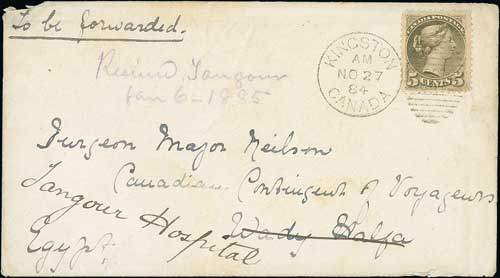 To be forwarded.
CANADA POSTAGE
5 CENTS 5
KINGSTON
AM
NO 27
84
CANADA
Received Tangour
Jan 6-1885
Surgeon Major Neilson
Canadian Contingent of Voyageurs
Tangour Hospital Wady Halfa
Egypt.